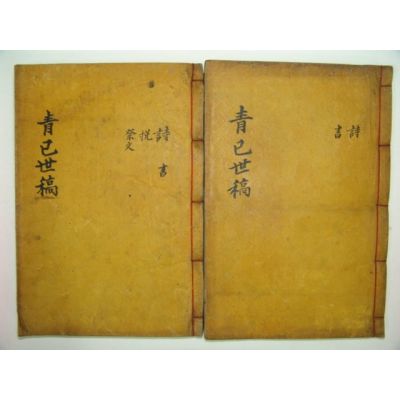 青已世稿
詩
書
青已世稿
詩 書
悅
祭文